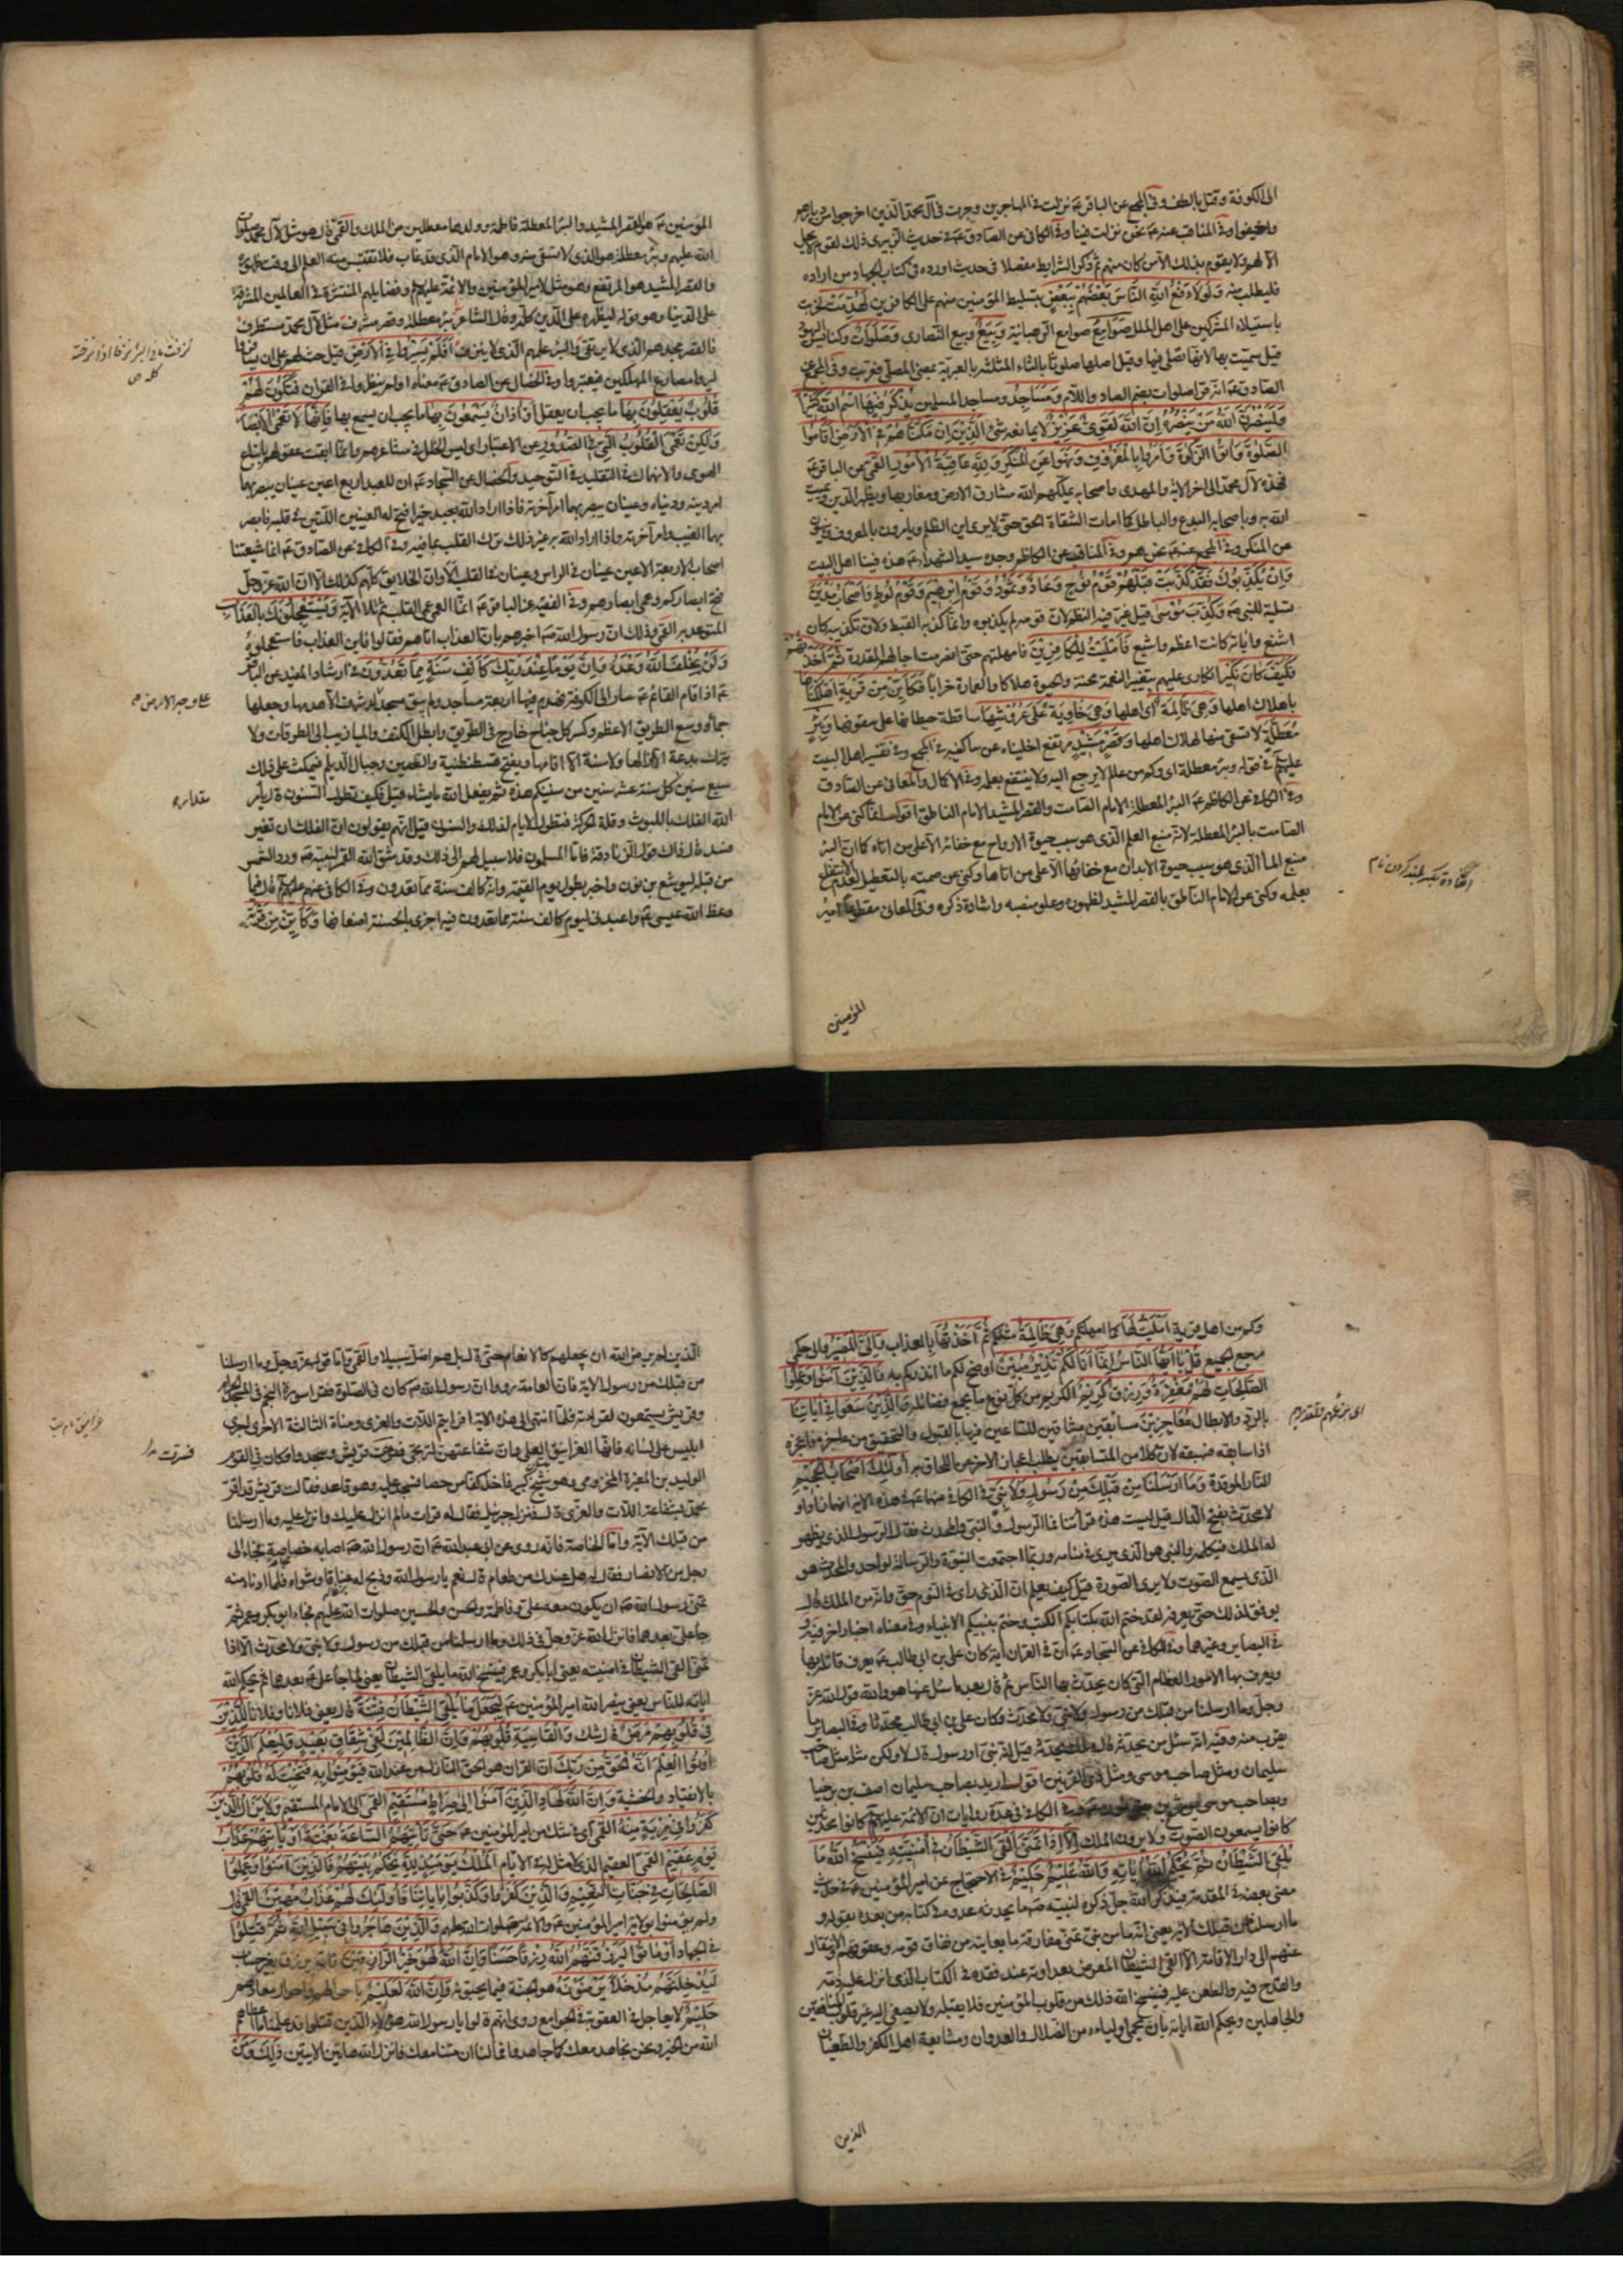 الى الكوفة وقتل بالطف وفي المجمع عن الباقر ع نزلت في المهاجرين وجرت في آل محمد الذين اخرجوا من ديارهم
واخيفوا وفي المناقب عنه ع نحن نزلت فينا وفي الكافي عن الصادق ع في حديث الزبيري ذلك لقوم لا يحل
الا لهم ولا يقوم بذلك الا من كان منهم ثم ذكر الشرايط مفصلا في حديث اورده في كتاب الجهاد من اراده
فليطلب منه وَلَوْلَا دَفْعُ اللَّهِ النَّاسَ بَعْضَهُمْ بِبَعْضٍ بتسليط المؤمنين منهم على الكافرين لَهُدِّمَتْ لخربت
باستيلاء المشركين على اهل الملل صَوَامِعُ صوامع الرهبانية وَبِيَعٌ وبيع النصارى وَصَلَوَاتٌ وكنايس اليهود
قيل سميت بها لانها تصلى فيها وقيل اصلها صلوتا بالثاء المثلثة بالعبرية بمعنى المصلى فعربت وفي المجمع عن
الصادق ع انه قرا صلوات بضم الصاد واللام وَمَسَاجِدُ ومساجد المسلمين يُذْكَرُ فِيهَا اسْمُ اللَّهِ كَثِيرًا
وَلَيَنْصُرَنَّ اللَّهُ مَنْ يَنْصُرُهُ إِنَّ اللَّهَ لَقَوِيٌّ عَزِيزٌ لا يمانعه شئ الَّذِينَ إِنْ مَكَّنَّاهُمْ فِي الْأَرْضِ أَقَامُوا
الصَّلَوةَ وَآتَوُا الزَّكَوةَ وَأَمَرُوا بِالْمَعْرُوفِ وَنَهَوْا عَنِ الْمُنْكَرِ وَلِلَّهِ عَاقِبَةُ الْأُمُورِ القمي عن الباقر ع
فهذه لآل محمد الى اخر الاية والمهدى واصحابه يملكهم الله مشارق الارض ومغاربها ويظهر الدين ويميت
الله به وباصحابه البدع والباطل كما امات الشقاة الحق حتى لا يرى اين الظلم ويامرون بالمعروف وينهون
عن المنكر وفي المجمع عنه ع نحن هم وفي المناقب عن الكاظم وجده سيد الشهداء ع هذه فينا اهل البيت
وَإِنْ يُكَذِّبُوكَ فَقَدْ كَذَّبَتْ قَبْلَهُمْ قَوْمُ نُوحٍ وَعَادٌ وَثَمُودُ وَقَوْمُ إِبْرَهِيمَ وَقَوْمُ لُوطٍ وَأَصْحَابُ مَدْيَنَ
تسلية للنبي ص وَكُذِّبَ مُوسَى قيل غير فيه النظم لان قومه لم يكذبوه وانما كذبه القبط ولان تكذيبه كان
اشنع واياته كانت اعظم واشيع فَأَمْلَيْتُ لِلْكَافِرِينَ فامهلتهم حتى انصرمت اجالهم المقدرة ثُمَّ أَخَذْتُهُمْ
فَكَيْفَ كَانَ نَكِيرِ انكارى عليهم بتغيير النعمة محنة والحيوة هلاكا والعمارة خرابا فَكَأَيِّنْ مِنْ قَرْيَةٍ أَهْلَكْنَاهَا
باهلاك اهلها وَهِيَ ظَالِمَةٌ اى اهلها فَهِيَ خَاوِيَةٌ عَلَى عُرُوشِهَا ساقطة حيطانها على سقوفها وَبِئْرٍ
مُعَطَّلَةٍ لا تستقى منها لهلاك اهلها وَقَصْرٍ مَشِيدٍ مرتفع اخليناه عن ساكنيه في المجمع وفي تفسير اهل البيت
عليهم في قوله وبئر معطلة اى وكم من عالم لا يرجع اليه ولا ينتفع بعلمه وفي الاكمال والمعاني عن الصادق
وفي الكافي عن الكاظم ع البئر المعطلة الامام الصامت والقصر المشيد الامام الناطق اقول انما كنى عن الامام
الصامت بالبئر المعطلة لانه منبع العلم الذى هو سبب حيوة الارواح مع خفائه الا على من اتاه كما ان البئر
منبع الماء الذى هو سبب حيوة الابدان مع خفائها الا على من اتاها وكنى عن صمته بالتعطيل لعدم الانتفاع
بعلمه وكنى عن الامام الناطق بالقصر المشيد لظهوره وعلو منصبه واشادة ذكره وفي المعاني مقطوعا امير
المؤمنين
المؤمنين ع هو القصر المشيد والبئر المعطلة فاطمة وولدها معطلين من الملك والقمي قال هو مثل لآل محمد صلوات
الله عليهم وبئر معطلة هو الذى لا يستقى منه وهو الامام الذى قد غاب فلا تقتبس منه العلم الى وقت ظهوره
والقصر المشيد هو المرتفع وهو مثل لامير المؤمنين والائمة عليهم وفضايلهم المنتشرة في العالمين المشرفة
على الدنيا وهو قوله ليظهره على الدين كله وقال الشاعر بئر معطلة وقصر مشرف مثل لآل محمد مستطرف
فالقصر مجدهم الذى لا يرتقى والبئر علمهم الذى لا ينزف أَفَلَمْ يَسِيرُوا فِي الْأَرْضِ قيل حث لهم على ان يسافروا
ليروا مصارع المهلكين فيعتبروا وفي الخصال عن الصادق ع معناه اولم ينظروا في القران فَتَكُونَ لَهُمْ
قُلُوبٌ يَعْقِلُونَ بِهَا ما يجب ان يعقل أَوْ آذَانٌ يَسْمَعُونَ بِهَا ما يجب ان يسمع بها فَإِنَّهَا لَا تَعْمَى الْأَبْصَارُ
وَلَكِنْ تَعْمَى الْقُلُوبُ الَّتِي فِي الصُّدُورِ عن الاعتبار اى ليس الخلل في مشاعرهم وانما ايفت عقولهم باتباع
الهوى والانهماك في التقليد في التوحيد والخصال عن السجاد ع ان للعبد اربع اعين عينان يبصر بهما
امر دينه ودنياه وعينان يبصر بهما امر آخرته فاذا اراد الله بعبد خيرا فتح له العينين اللتين في قلبه فابصر
بهما الغيب وامر آخرته واذا اراد الله به غير ذلك ترك القلب بما فيه وفي الكافي عن الصادق ع انما شيعتنا
اصحاب الاربعة الاعين عينان في الراس وعينان في القلب الا وان الخلايق كلهم كذلك الا ان الله عز وجل
فتح ابصاركم وعمى ابصارهم وفي الفقيه عن الباقر ع انما العمى عمى القلب ثم تلا الاية وَيَسْتَعْجِلُونَكَ بِالْعَذَابِ
المتوعد به القمي وذلك ان رسول الله ص اخبرهم بان العذاب اتاهم فقالوا فاين العذاب فاستعجلوه
وَلَنْ يُخْلِفَ اللَّهُ وَعْدَهُ وَإِنَّ يَوْمًا عِنْدَ رَبِّكَ كَأَلْفِ سَنَةٍ مِمَّا تَعُدُّونَ في ارشاد المفيد عن الباقر
ع اذا قام القائم ع سار الى الكوفة فهدم فيها اربعة مساجد ولم يبق مسجد له شرف الا هدمها وجعلها
جماء ووسع الطريق الاعظم وكسر كل جناح خارج في الطريق وابطل الكنف والميازيب الى الطرقات ولا
يترك بدعة الا ازالها ولا سنة الا اقامها ويفتح قسطنطنية والصين وجبال الديلم فيمكث على ذلك
سبع سنين كل سنة عشر سنين من سنيكم هذه ثم يفعل الله ما يشاء قيل فكيف تطول السنون قال يأمر
الله الفلك باللبوث وقلة الحركة فتطول الايام لذلك والسنون قيل انهم يقولون ان الفلك ان تغير
فسد قال ذاك قول الزنادقة فاما المسلمون فلا سبيل لهم الى ذلك وقد شق الله القمر لنبيه ص ورد الشمس
من قبله ليوشع بن نون واخبر بطول يوم القيمة وانه كالف سنة مما تعدون وفي الكافي عنهم عليهم قال فيما
وعظ الله عيسى ع واعبدنى ليوم كالف سنة مما تعدون فيه اجزى بالحسنة اضعافها وَكَأَيِّنْ مِنْ قَرْيَةٍ
نزفت ماء البئر نزفا اذا نزحته
كله ص
على وجه الارض ص
مقداره
وكم من اهل قرية أَمْلَيْتُ لَهَا كما امهلتكم وَهِيَ ظَالِمَةٌ مثلكم ثُمَّ أَخَذْتُهَا بالعذاب وَإِلَيَّ الْمَصِيرُ والى حكمى
مرجع الجميع قُلْ يَا أَيُّهَا النَّاسُ إِنَّمَا أَنَا لَكُمْ نَذِيرٌ مُبِينٌ اوضح لكم ما انذركم به فَالَّذِينَ آمَنُوا وَعَمِلُوا
الصَّالِحَاتِ لَهُمْ مَغْفِرَةٌ وَرِزْقٌ كَرِيمٌ الكريم من كل نوع ما يجمع فضائله وَالَّذِينَ سَعَوْا فِي آيَاتِنَا
بالرد والابطال مُعَاجِزِينَ مسابقين مشاقين للساعين فيها بالقبول والتحقيق من عاجزه فاعجزه
اذا سابقه فسبقه لان كلا من المتسابقين يطلب اعجاز الاخر من اللحاق به أُولَئِكَ أَصْحَابُ الْجَحِيمِ
النار الموقدة وَمَا أَرْسَلْنَا مِنْ قَبْلِكَ مِنْ رَسُولٍ وَلَا نَبِيٍّ في الكافي عنهما ع في هذه الاية انهما زادا و
لا محدث بفتح الدال قيل ليست هذه قرأتنا فما الرسول والنبي والمحدث فقال الرسول الذى يظهر
له الملك فيكلمه والنبي هو الذى يرى في منامه وربما اجتمعت النبوة والرسالة لواحد والمحدث هو
الذى يسمع الصوت ولا يرى الصورة قيل كيف يعلم ان الذى راى في النوم حق وانه من الملك قال
يوفق لذلك حتى يعرفه لقد ختم الله بكتابكم الكتب وختم بنبيكم الانبياء وفي معناه اخبار اخر فيه و
في البصاير وغيرهما وفي الكافي عن السجاد ع ان في القران اية كان علي بن ابي طالب ع يعرف قاتله بها
ويعرف بها الامور العظام التى كان يحدث بها الناس ثم قال بعد ما سئل عنها هو والله قول الله عز
وجل وما ارسلنا من قبلك من رسول ولا نبي ولا محدث فكان علي بن ابي طالب محدثا وفي البصاير ما
يقرب منه وفيه انه سئل من يحدثه قال ملك يحدثه قيل انه نبي او رسول قال لا ولكن مثله مثل صاحب
سليمان ومثل صاحب موسى ومثل ذى القرنين اقول اريد بصاحب سليمان اصف بن برخيا
وبصاحب موسى يوشع بن نون وفي الكافي في عدة روايات ان الائمة عليهم كانوا محدثين
كانوا يسمعون الصوت ولا يرون الملك إِلَّا إِذَا تَمَنَّى أَلْقَى الشَّيْطَانُ فِي أُمْنِيَّتِهِ فَيَنْسَخُ اللَّهُ مَا
يُلْقِي الشَّيْطَانُ ثُمَّ يُحْكِمُ اللَّهُ آيَاتِهِ وَاللَّهُ عَلِيمٌ حَكِيمٌ في الاحتجاج عن امير المؤمنين ع في حديث
مضى بعضه في المقدمة فيذكر الله جل ذكره لنبيه ص ما يحدثه عدوه في كتابه من بعده بقوله و
ما ارسلنا من قبلك الاية يعنى انه ما من نبي تمنى مفارقة ما يعاينه من نفاق قومه وعقوقهم والانتقال
عنهم الى دار الاقامة الا القى الشيطان المعرض بعداوته عند فقده في الكتاب الذى انزل عليه ذمه
والقدح فيه والطعن عليه فينسخ الله ذلك من قلوب المؤمنين فلا يقبله ولا يصغى اليه غير قلوب المنافقين
والجاهلين ويحكم الله اياته بان يحمى اولياءه من الضلال والعدوان ومشايعة اهل الكفر والطغيان
الذين
الذين لم يرض الله ان يجعلهم كالانعام حتى قال بل هم اضل سبيلا والقمي واما قوله عز وجل وما ارسلنا
من قبلك من رسول الاية فان العامة رووا ان رسول الله ص كان في الصلوة فقرا سورة النجم في المسجد الحرام
وقريش يستمعون لقراءته فلما انتهى الى هذه الاية افرايتم اللات والعزى ومناة الثالثة الاخرى اجرى
ابليس على لسانه فانها الغرانيق العلى وان شفاعتهن لترتجى ففرحت قريش وسجدوا وكان في القوم
الوليد بن المغيرة المخزومى وهو شيخ كبير فاخذ كفا من حصا فسجد عليه وهو قاعد فقالت قريش قد اقر
محمد بشفاعة اللات والعزى قال فنزل جبرئيل فقال له قرات ما لم انزل عليك وانزل عليه وما ارسلنا
من قبلك الاية واما الخاصة فانه روى عن ابي عبدالله ع ان رسول الله ص اصابه خصاصة فجاء الى
رجل من الانصار فقال له هل عندك من طعام قال نعم يا رسول الله وذبح له عناقا وشواه فلما ادناه منه
تمنى رسول الله ص ان يكون معه على وفاطمة والحسن والحسين صلوات الله عليهم فجاء ابوبكر وعمر ثم
جاء على بعدهما فانزل الله عز وجل في ذلك وما ارسلنا من قبلك من رسول ولا نبي ولا محدث الا اذا
تمنى القى الشيطان في امنيته يعنى ابا بكر وعمر فينسخ الله ما يلقى الشيطان يعنى لما جاء على ع بعدهما ثم يحكم الله
اياته للناس يعنى ينصر الله امير المؤمنين ع لِيَجْعَلَ مَا يُلْقِي الشَّيْطَانُ فِتْنَةً قال يعنى فلانا وفلانا لِلَّذِينَ
فِي قُلُوبِهِمْ مَرَضٌ قال شك وَالْقَاسِيَةِ قُلُوبُهُمْ وَإِنَّ الظَّالِمِينَ لَفِي شِقَاقٍ بَعِيدٍ وَلِيَعْلَمَ الَّذِينَ
أُوتُوا الْعِلْمَ أَنَّهُ الْحَقُّ مِنْ رَبِّكَ ان القران هو الحق النازل من عند الله فَيُؤْمِنُوا بِهِ فَتُخْبِتَ لَهُ قُلُوبُهُمْ
بالانقياد والخشية وَإِنَّ اللَّهَ لَهَادِ الَّذِينَ آمَنُوا إِلَى صِرَاطٍ مُسْتَقِيمٍ القمي الى الامام المستقيم وَلَا يَزَالُ الَّذِينَ
كَفَرُوا فِي مِرْيَةٍ مِنْهُ القمي اى في شك من امير المؤمنين ع حَتَّى تَأْتِيَهُمُ السَّاعَةُ بَغْتَةً أَوْ يَأْتِيَهُمْ عَذَابُ
يَوْمٍ عَقِيمٍ القمي العقيم الذى لا مثل له في الايام الْمُلْكُ يَوْمَئِذٍ لِلَّهِ يَحْكُمُ بَيْنَهُمْ فَالَّذِينَ آمَنُوا وَعَمِلُوا
الصَّالِحَاتِ فِي جَنَّاتِ النَّعِيمِ وَالَّذِينَ كَفَرُوا وَكَذَّبُوا بِآيَاتِنَا فَأُولَئِكَ لَهُمْ عَذَابٌ مُهِينٌ القمي قال
ولم يؤمنوا بولاية امير المؤمنين ع والائمة صلوات الله عليهم وَالَّذِينَ هَاجَرُوا فِي سَبِيلِ اللَّهِ ثُمَّ قُتِلُوا
في الجهاد أَوْ مَاتُوا لَيَرْزُقَنَّهُمُ اللَّهُ رِزْقًا حَسَنًا وَإِنَّ اللَّهَ لَهُوَ خَيْرُ الرَّازِقِينَ فانه يرزق بغير حساب
لَيُدْخِلَنَّهُمْ مُدْخَلًا يَرْضَوْنَهُ هو الجنة فيها يحبونه وَإِنَّ اللَّهَ لَعَلِيمٌ باحوالهم واحوال معاديهم
حَلِيمٌ لا يعاجل في العقوبة في الجوامع روى انهم قالوا يا رسول الله هؤلاء الذين قتلوا قد علمنا ما اعطاهم
الله من الخير ونحن نجاهد معك كما جاهدوا فما لنا ان متنا معك فانزل الله هاتين الايتين ذَلِكَ وَمَنْ